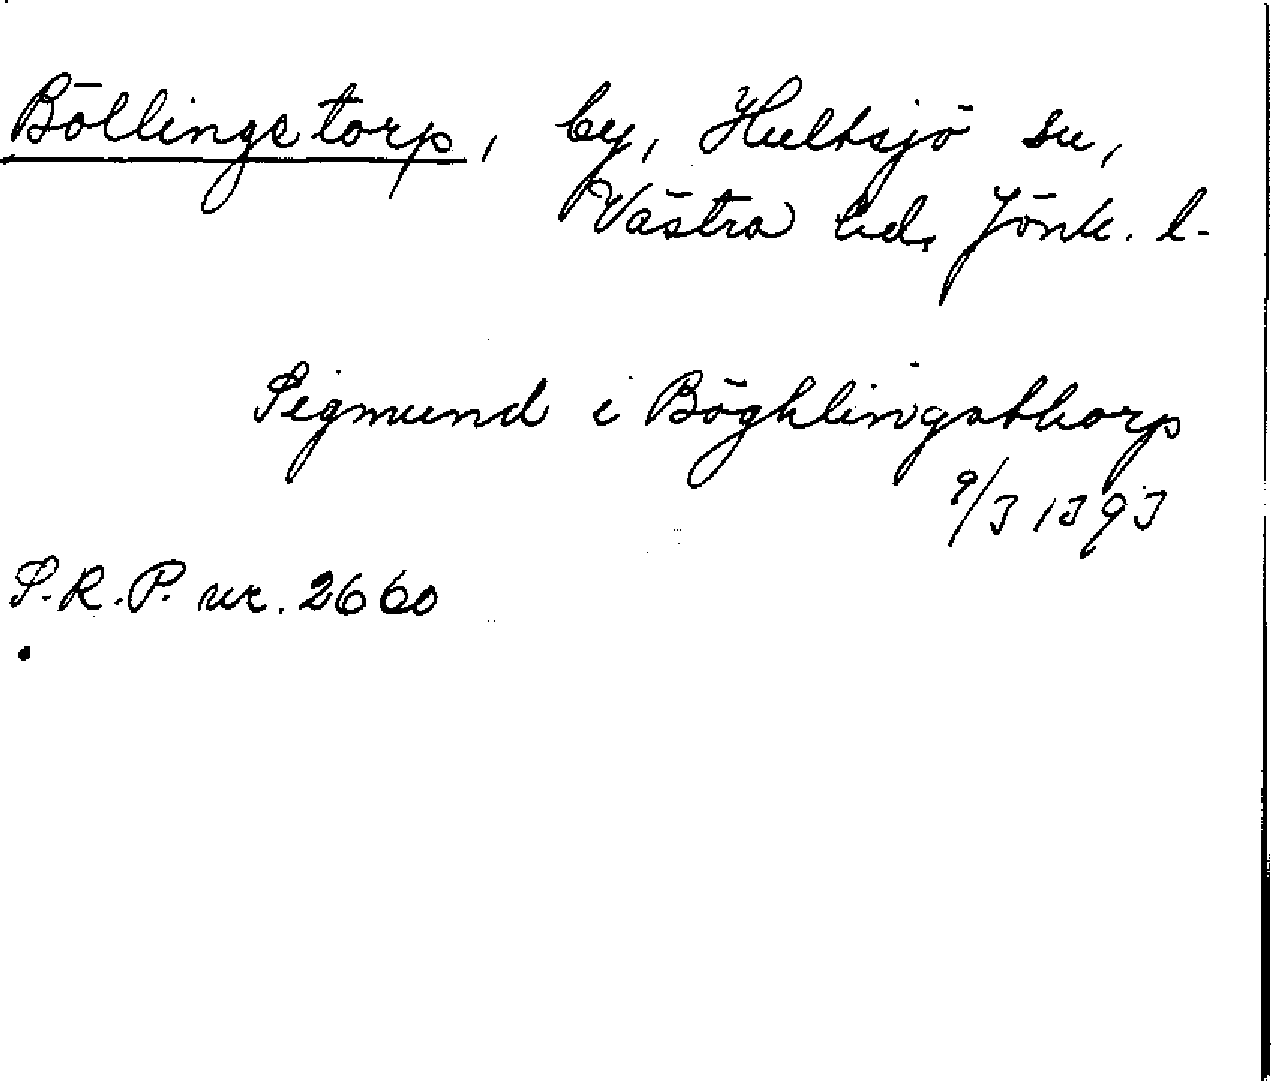 Böllingstorp, by, Hultsjö sn,
Västra hd, Jönk. l.
Sigmund i Böghlingsthorp
9/3 1393
S.R.P. nr. 2660